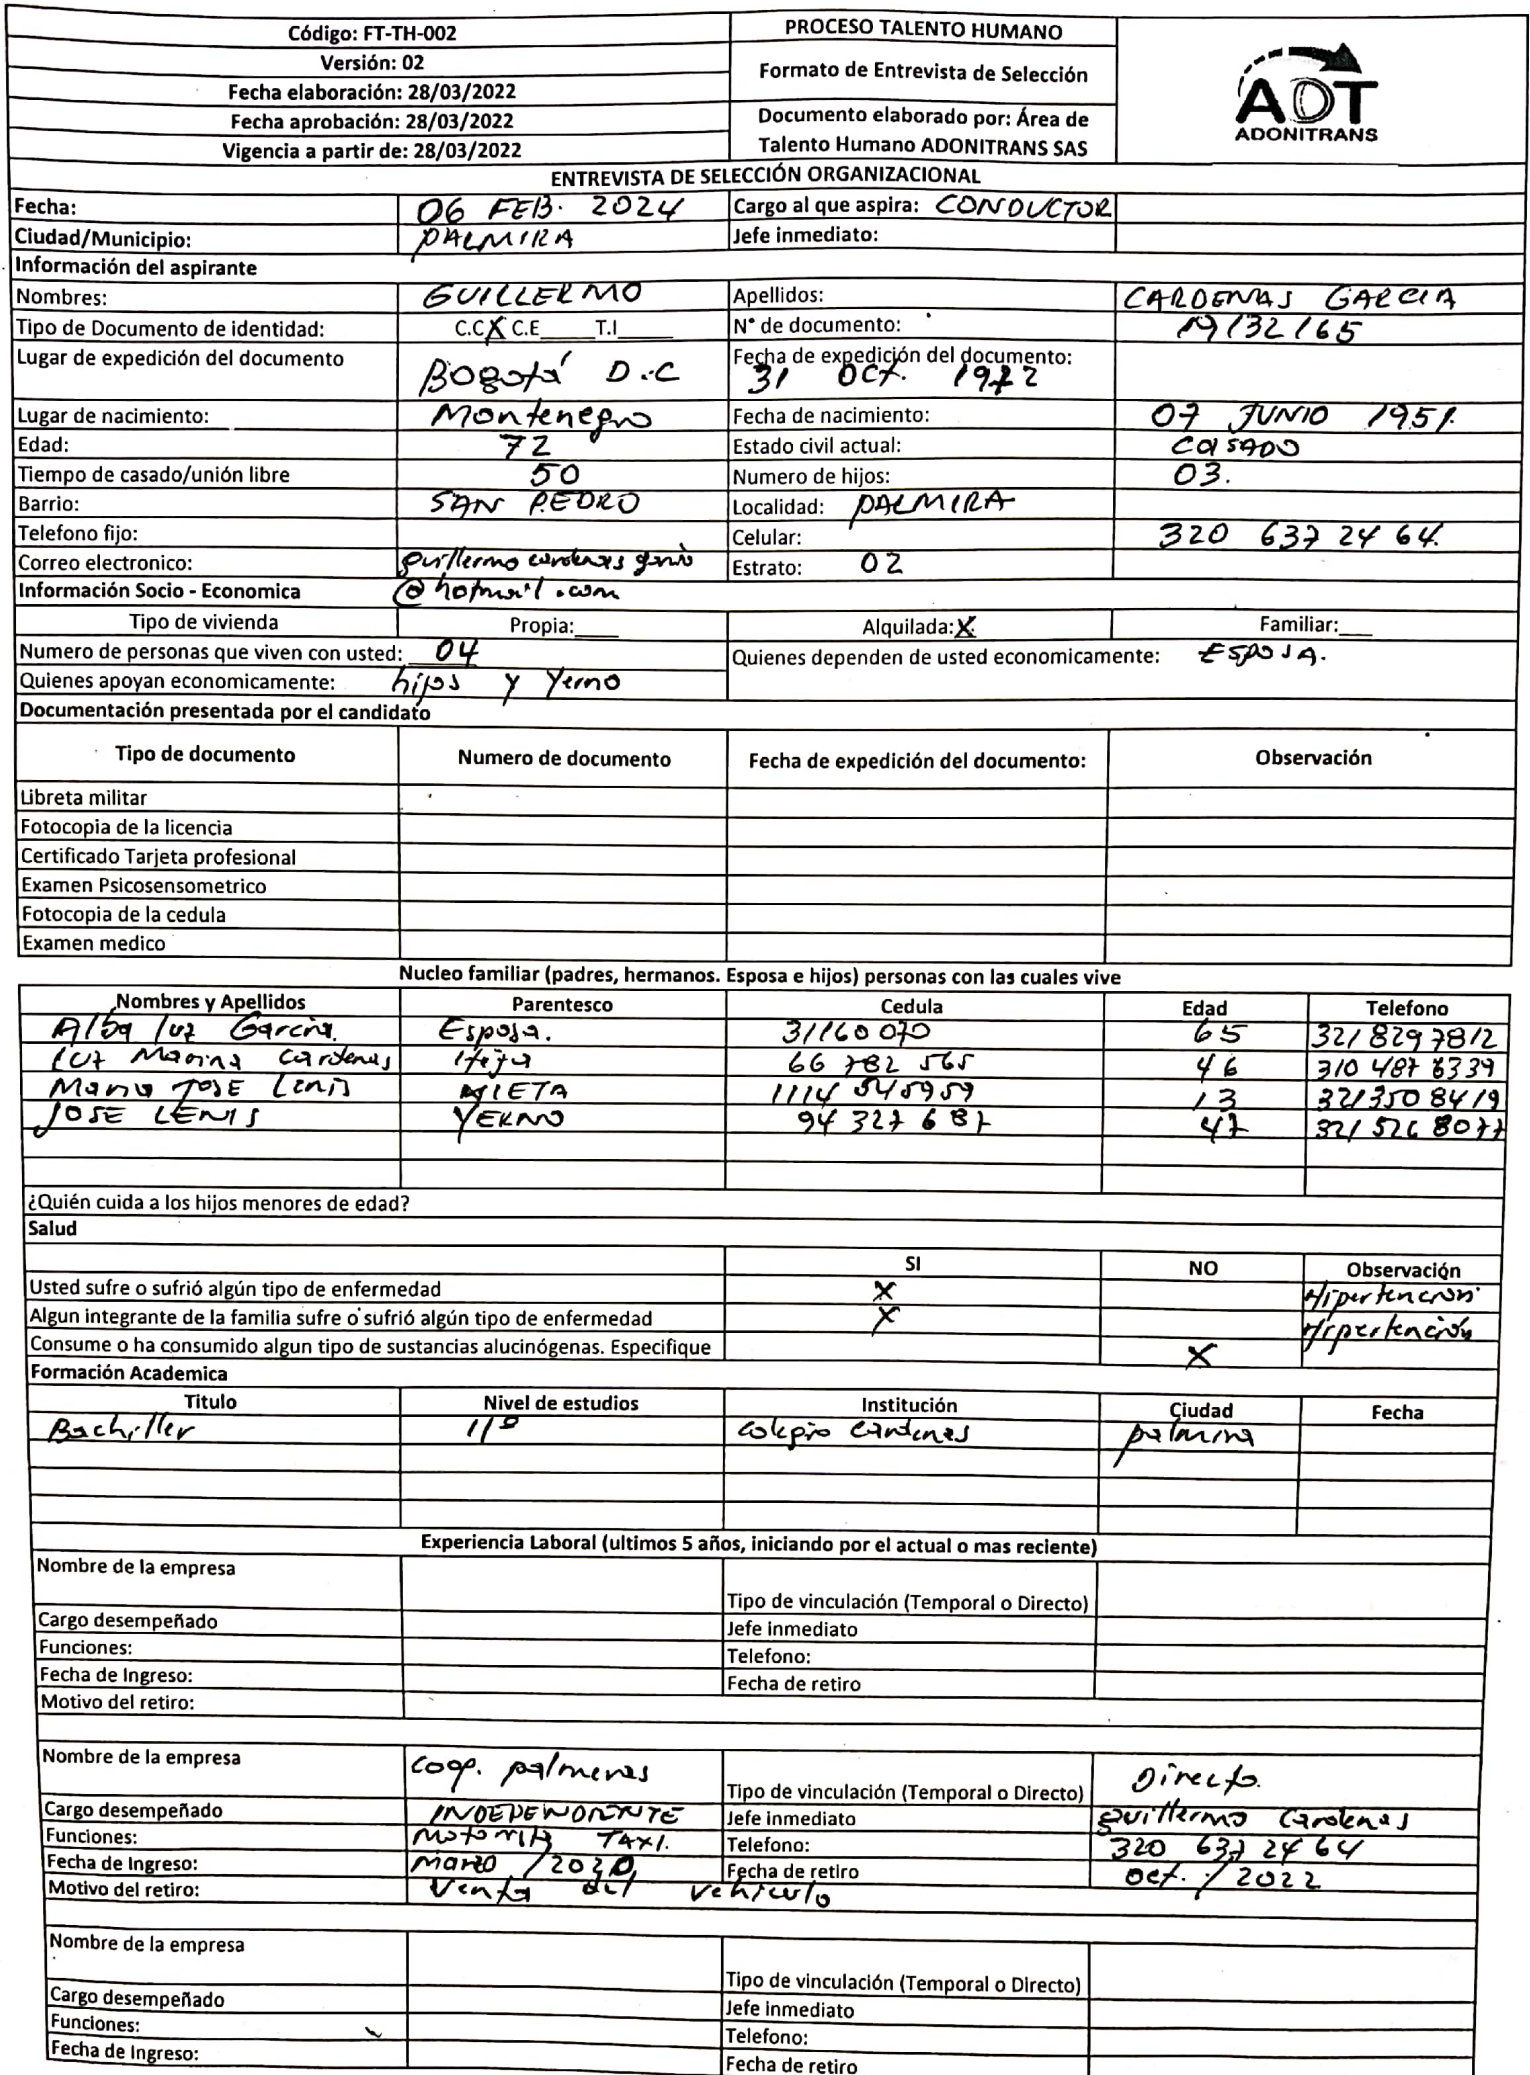 Código: FT-TH-002
PROCESO TALENTO HUMANO
Versión: 02
Formato de Entrevista de Selección
Fecha elaboración: 28/03/2022
Fecha aprobación: 28/03/2022
Documento elaborado por: Área de
Talento Humano ADONITRANS SAS
Vigencia a partir de: 28/03/2022
ADT
ADONITRANS
ENTREVISTA DE SELECCIÓN ORGANIZACIONAL
Fecha: 06 FEB. 2024 Cargo al que aspira: CONDUCTOR
Ciudad/Municipio: PALMIRA Jefe inmediato:
Información del aspirante
Nombres: GUILLERMO Apellidos: CARDENAS GARCIA
Tipo de Documento de identidad: C.C X C.E____T.I____ N° de documento: 19132165
Lugar de expedición del documento Bogotá D.C Fecha de expedición del documento: 31 Oct. 1972
Lugar de nacimiento: Montenegro Fecha de nacimiento: 07 JUNIO 1951.
Edad: 72 Estado civil actual: CASADO
Tiempo de casado/unión libre 50 Numero de hijos: 03.
Barrio: SAN PEDRO Localidad: PALMIRA
Telefono fijo: Celular: 320 637 24 64.
Correo electronico: guillermo cardenas Estrato: 02
Información Socio - Economica @hotmail.com
Tipo de vivienda Propia:____ Alquilada:X Familiar:___
Numero de personas que viven con usted: 04 Quienes dependen de usted economicamente: ESPOSA.
Quienes apoyan economicamente: hijos y Yerno
Documentación presentada por el candidato
Tipo de documento Numero de documento Fecha de expedición del documento: Observación
Libreta militar
Fotocopia de la licencia
Certificado Tarjeta profesional
Examen Psicosensometrico
Fotocopia de la cedula
Examen medico
Nucleo familiar (padres, hermanos. Esposa e hijos) personas con las cuales vive
Nombres y Apellidos Parentesco Cedula Edad Telefono
Alba luz Garcia. Esposa. 31160070 65 321 8297812
luz Marina cardenas Hija 66 782 565 46 310 487 6339
Maria JOSE Lenis NIETA 1114 545959 13 321350 8419
JOSE LENIS YERNO 94 327 687 47 321 526 8077
¿Quién cuida a los hijos menores de edad?
Salud
SI NO Observación
Usted sufre o sufrió algún tipo de enfermedad X Hipertención
Algun integrante de la familia sufre o sufrió algún tipo de enfermedad X Hipertención
Consume o ha consumido algun tipo de sustancias alucinógenas. Especifique X
Formación Academica
Titulo Nivel de estudios Institución Ciudad Fecha
Bachiller 11º colegio Cardenas palmira
Experiencia Laboral (ultimos 5 años, iniciando por el actual o mas reciente)
Nombre de la empresa Tipo de vinculación (Temporal o Directo)
Cargo desempeñado Jefe inmediato
Funciones: Telefono:
Fecha de Ingreso: Fecha de retiro
Motivo del retiro:
Nombre de la empresa coop. palmeras Tipo de vinculación (Temporal o Directo) Directo.
Cargo desempeñado INDEPENDIENTE Jefe inmediato guillermo Cardenas
Funciones: Motorista TAXI. Telefono: 320 637 24 64
Fecha de Ingreso: Marzo /2020 Fecha de retiro oct. / 2022
Motivo del retiro: Venta del vehiculo
Nombre de la empresa Tipo de vinculación (Temporal o Directo)
Cargo desempeñado Jefe inmediato
Funciones: Telefono:
Fecha de Ingreso: Fecha de retiro